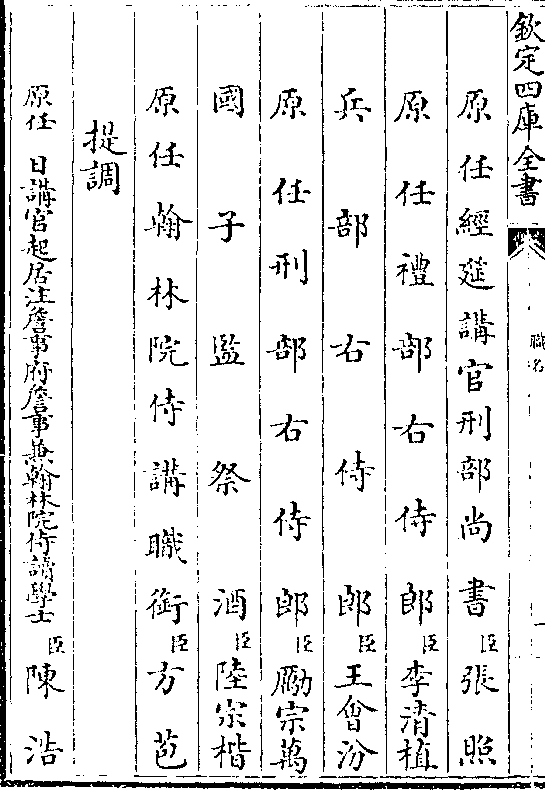 欽定四庫全書
職名
一
原任經筵講官刑部尚書臣張照
原任禮部右侍郎臣李清植
兵部右侍郎臣王會汾
原任刑部右侍郎臣勵宗萬
國子監祭酒臣陸宗楷
原任翰林院侍講職銜臣方苞
提調
原任日講官起居注詹事府詹事兼翰林院侍讀學士臣陳浩